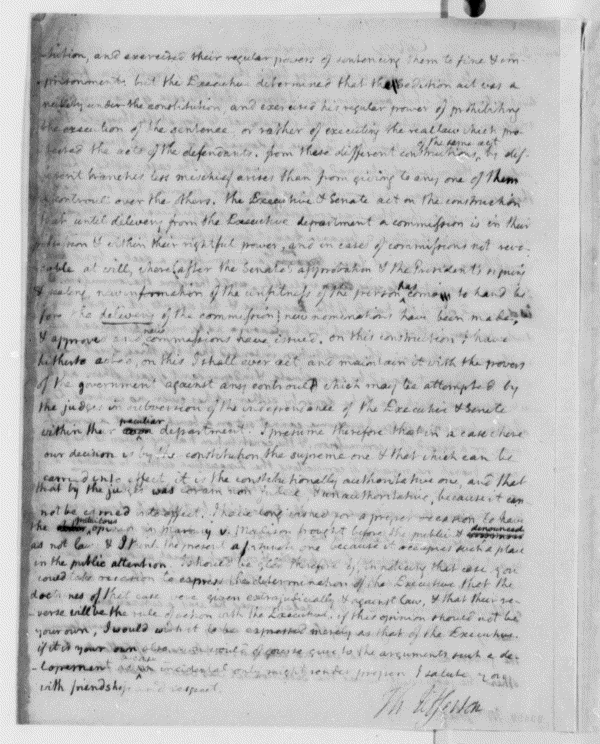 -tution, and exercised their regular powers of sentencing them to fine & im-
-prisonment, but the Executive determined that the sedition act was a
nullity under the constitution, and exercised his regular power of prohibiting
the execution of the sentence, or rather of executing the real law which pro-
tected the acts of the defendants. from these different constructions of the same act by dif-
ferent branches less mischief arises than from giving to any one of them
a controul over the others. the Executive & Senate act on the construction
that until delivery from the Executive department a commission is in their
possession & within their rightful power, and in cases of commissions not revo-
cable at will, where after the Senate's approbation & the President's signing
& sealing, new information of the unfitness of the person has come to hand be-
fore the delivery of the commission, new nominations have been made,
& approved and new commissions have issued. on this construction I have
hitherto acted, on this I shall ever act, and maintain it with the powers
of the government against any controul which may be attempted by
the judges in subversion of the independance of the Executive & Senate
within their peculiar department. I presume therefore that in a case where
our decision is by the constitution the supreme one & that which can be
carried into effect, it is the constitutionally authoritative one, and that
that by the judges was coram non judice & unauthoritative, because it can
not be carried into effect. I have long wished for a proper occasion to have
the gratuitous opinion in Marbury v. Madison brought before the public & denounced
as not law: & I think the present a fortunate one because it occupies such a place
in the public attention. I should be glad therefore if in noticing that case you
could take occasion to express the determination of the Executive that the
doctrines of that case were given extrajudicially & against law, & that their re-
verse will be the rule of action with the Executive. if this opinion should not be
your own, I would wish it to be expressed merely as that of the Executive.
if it is your own also, you would of course give to the arguments such a de-
-velopement as a case incidental only might render proper. I salute you
with friendship and respect.
Th Jefferson